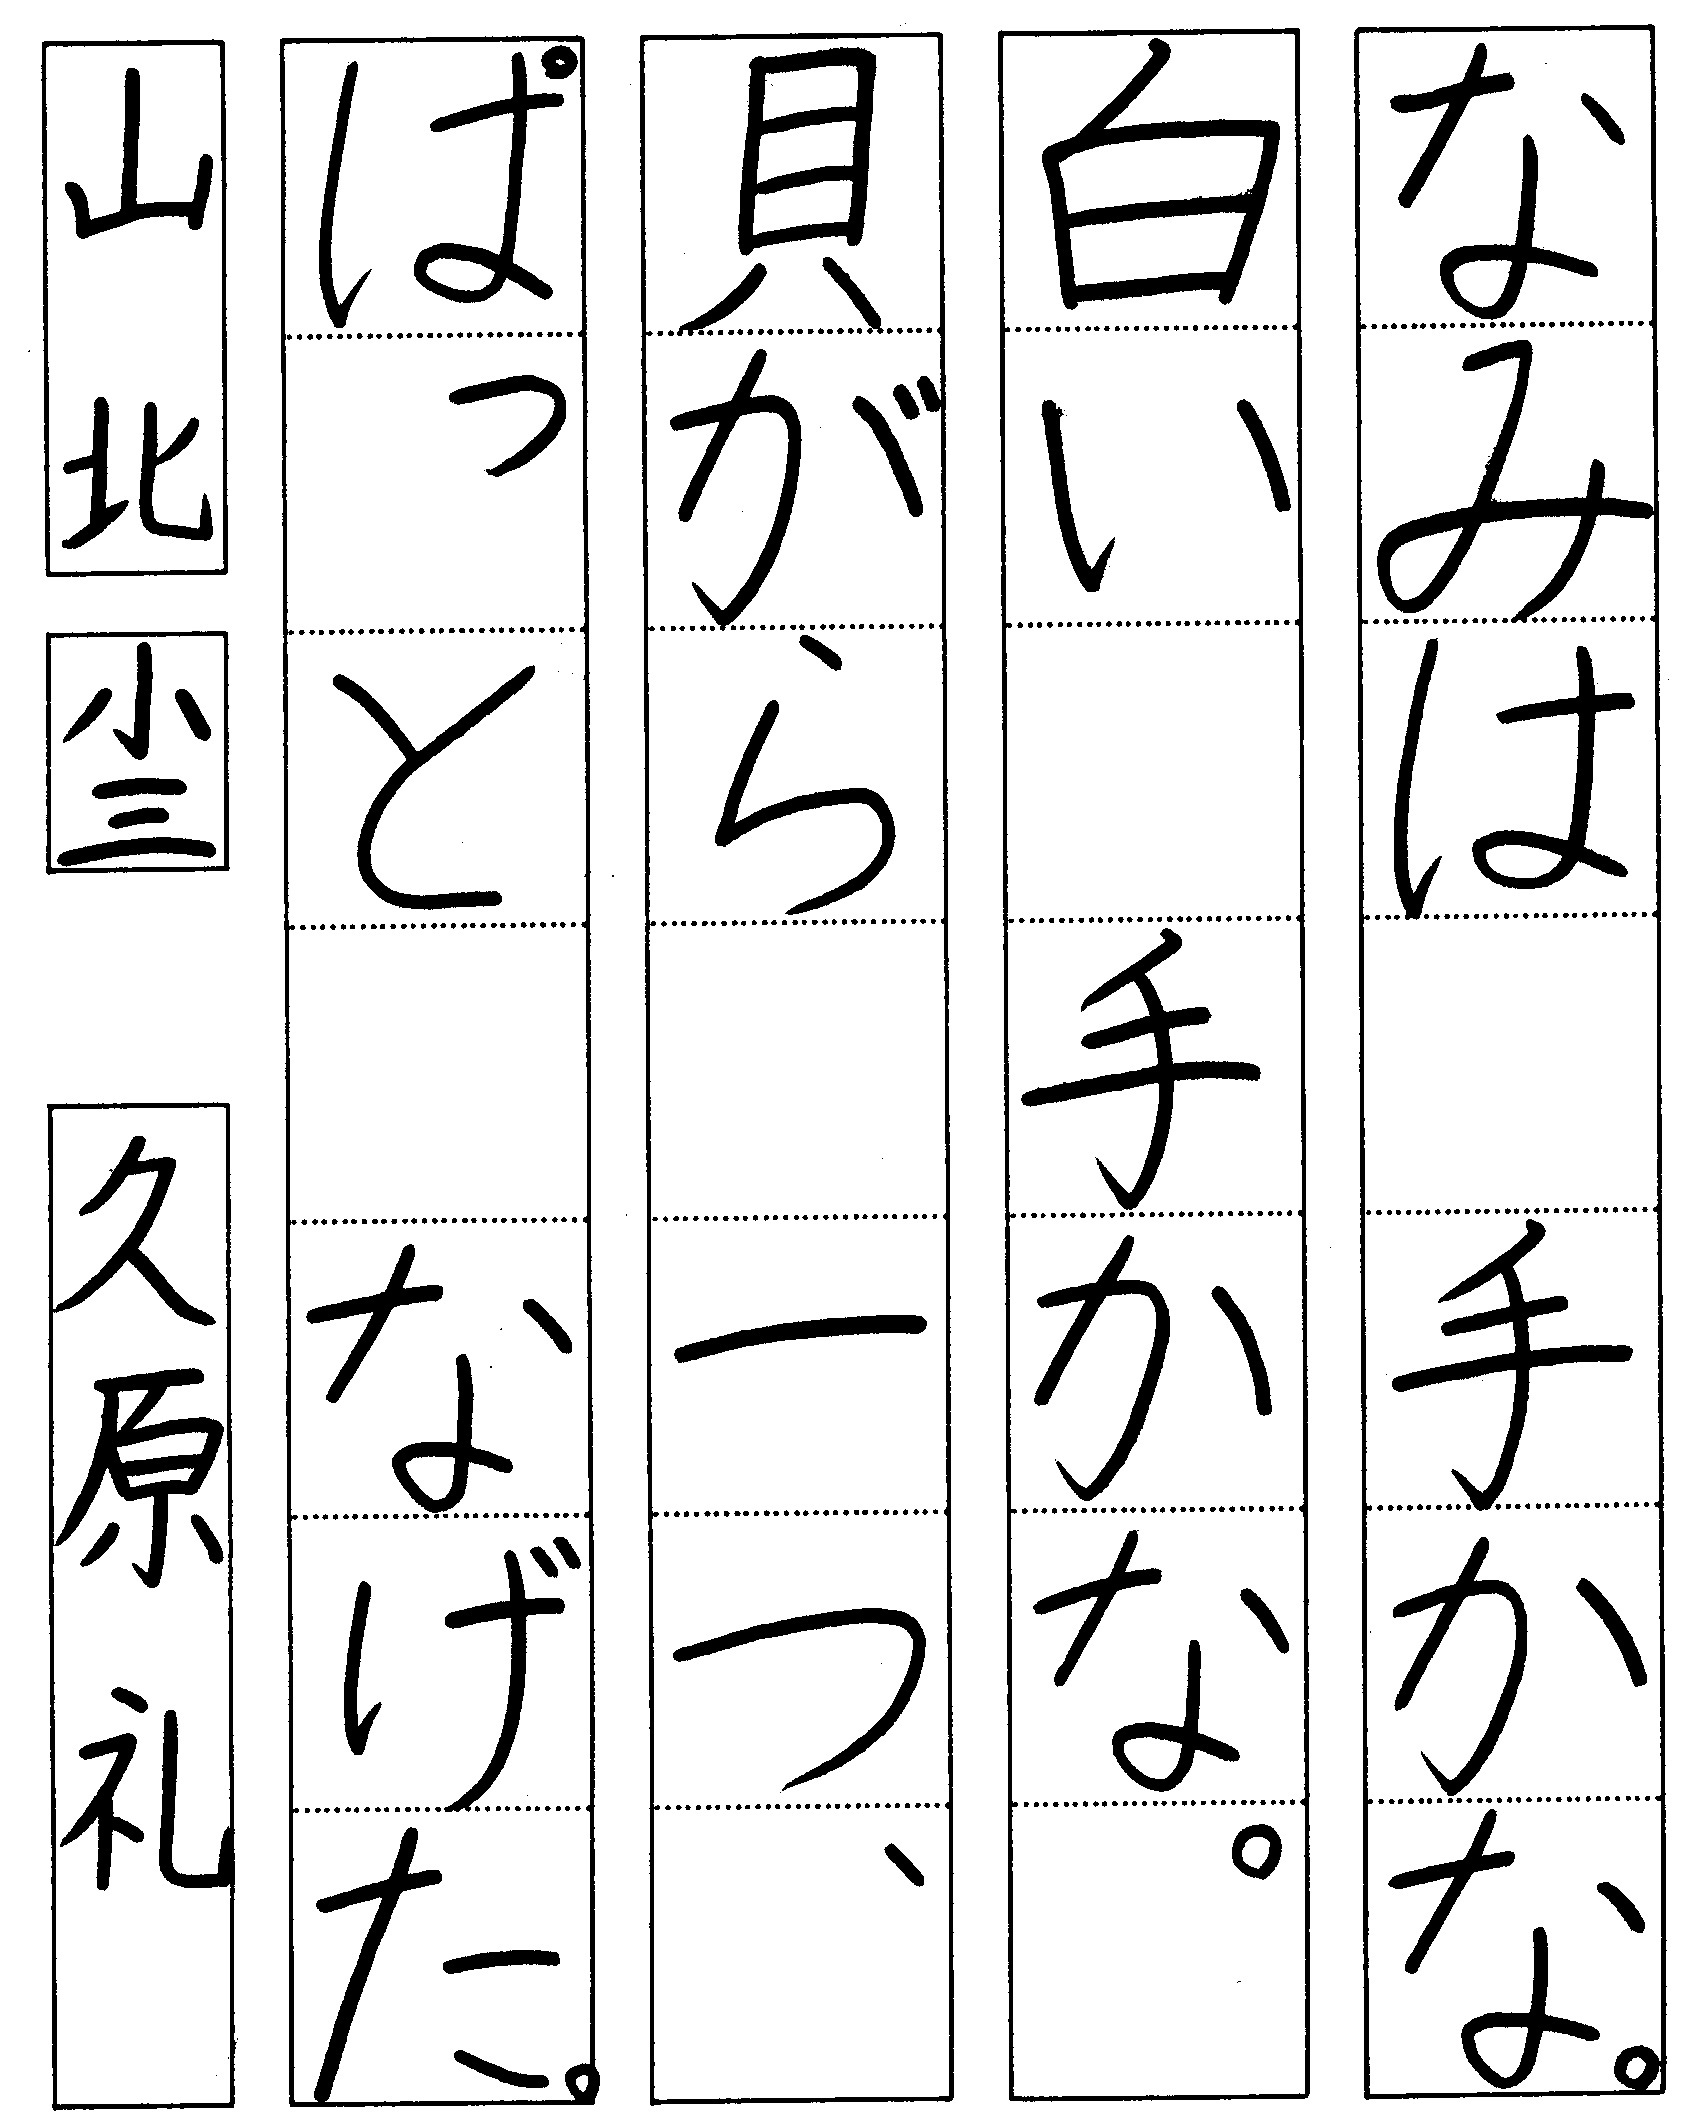 なみは　手かな。
白い　手かな。
貝がら　一つ、
ぱっと　なげた。
山北
小三
久原礼